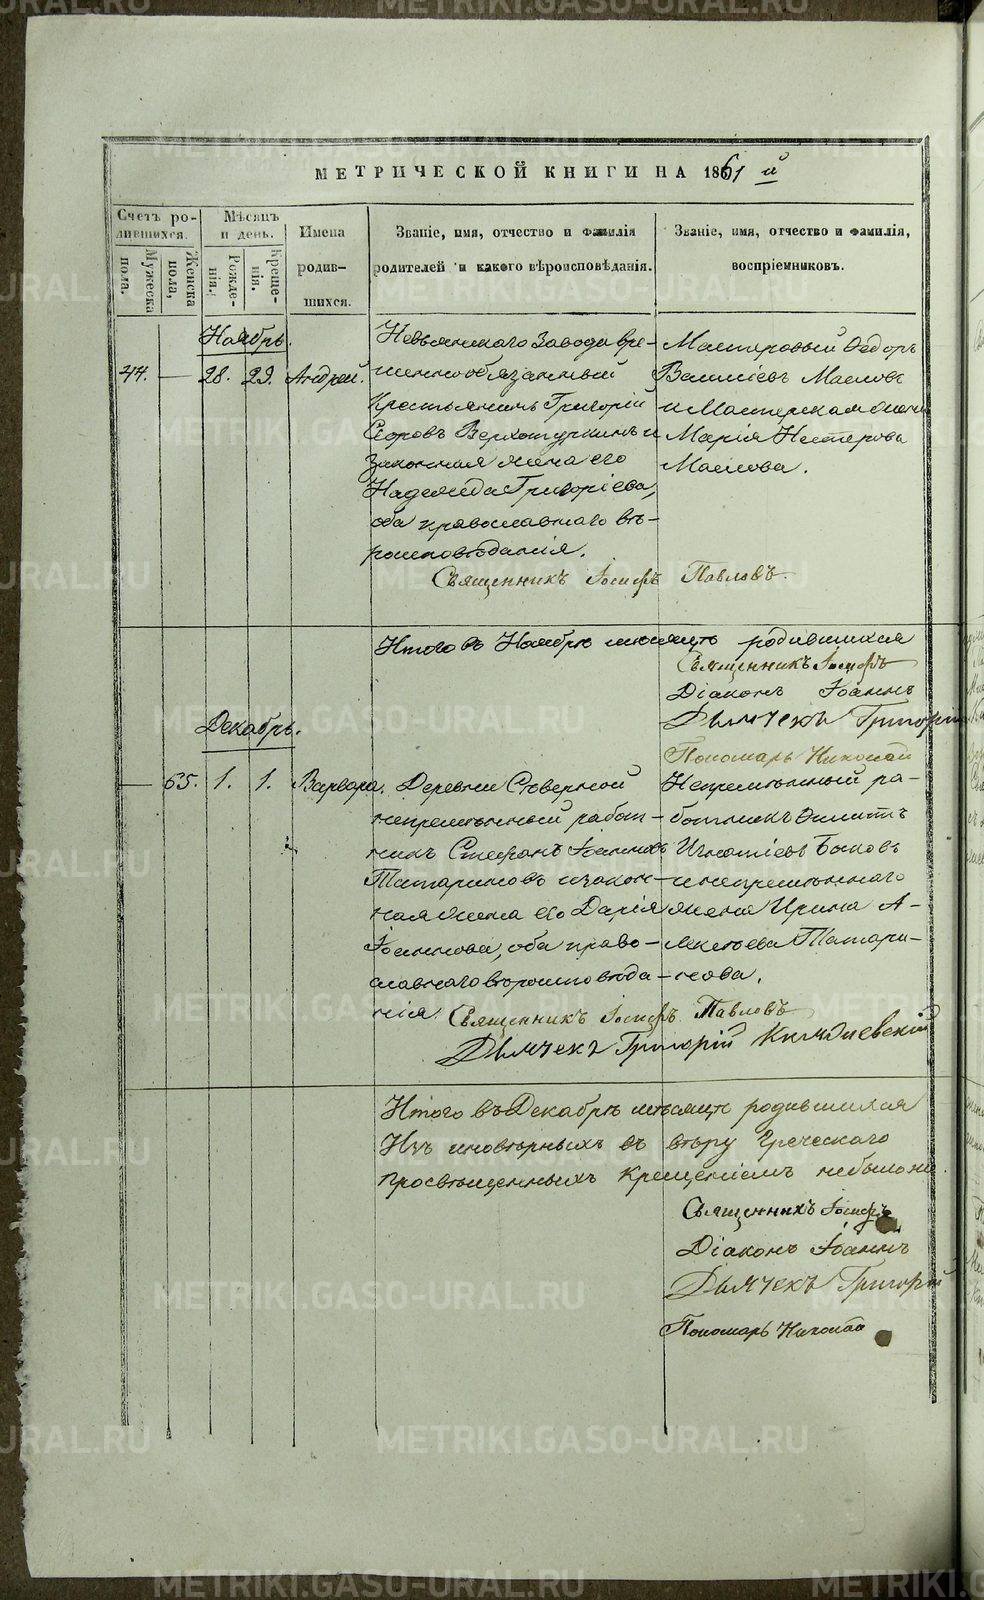 МЕТРИЧЕСКОЙ КНИГИ НА 1861 й
Счетъ ро-
дившихся.
Мужеска
пола.
Женска
пола,
Мѣсяцъ
и день.
Рожде-
нія.
Креще-
нія.
Имена
родив-
шихся.
Званіе, имя, отчество и фамилія
родителей и какого вѣроисповѣданія.
Званіе, имя, отчество и фамилія,
воспріемниковъ.
Ноябрь.
44. — 28. 29. Андрей.
Невьянскаго Завода вре-
меннообязанный
крестьянинъ Григорій
Верхотуркинъ и
законная жена его
Надежда Григоріева,
оба православнаго вѣ-
роисповѣданія.
Мастеровый Ѳедоръ
Масловъ
и Мастерская жена
Марія Нестерова
Маслова.
Священникъ Іосифъ Павловъ.
Итого въ Ноябрѣ мѣсяцѣ родившихся
Священникъ Іосифъ
Діаконъ Іоаннъ
Дьячекъ Григорій
Пономарь Николай
Декабрь.
— 65. 1. 1. Варвара.
Деревни Сѣверной
непремѣнный работ-
никъ Стефанъ Іоанновъ
Татариновъ и закон-
ная жена его Дарія
Іоаннова, оба право-
славнаго вѣроисповѣда-
нія.
Непремѣнный ра-
ботникъ
Игнатіевъ Быковъ
и непремѣннаго
жена Ирина А-
лексѣева Татари-
нова.
Священникъ Іосифъ Павловъ
Дьячекъ Григорій
Итого въ Декабрѣ мѣсяцѣ родившихся
Изъ иновѣрныхъ въ вѣру Греческаго
просвѣщенныхъ крещеніемъ небыло
Священникъ Іосифъ
Діаконъ Іоаннъ
Дьячекъ Григорій
Пономарь Николай
METRIKI.GASO-URAL.RU